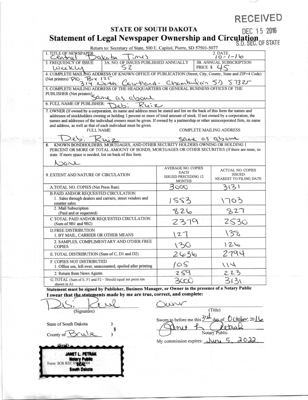 RECEIVED
DEC 15 2016
S.D. SEC. OF STATE
STATE OF SOUTH DAKOTA
Statement of Legal Newspaper Ownership and Circulation
Return to: Secretary of State, 500 E. Capitol, Pierre, SD 57501-5077
1. TITLE OF NEWSPAPER
2. DATE
Central Dakota Times
10-1-16
3. FREQUENCY OF ISSUE
3A. NO. OF ISSUES PUBLISHED ANNUALLY
3B. ANNUAL SUBSCRIPTION
Weekly
52
PRICE $ 45
4. COMPLETE MAILING ADDRESS OF KNOWN OFFICE OF PUBLICATION (Street, City, County, State and ZIP+4 Code)
(Not printers) PO Box 125
Chamberlain SD 57325
5. COMPLETE MAILING ADDRESS OF THE HEADQUARTERS OR GENERAL BUSINESS OFFICES OF THE
PUBLISHER (Not printers)
Same as above
6. FULL NAME OF PUBLISHER:
7. OWNER (If owned by a corporation, its name and address must be stated and list on the back of this form the names and
addresses of stockholders owning or holding 1 percent or more of total amount of stock. If not owned by a corporation, the
names and addresses of the individual owners must be given. If owned by a partnership or other unincorporated firm, its name
and address, as well as that of each individual must be given.
FULL NAME
COMPLETE MAILING ADDRESS
Same as above
8. KNOWN BONDHOLDERS, MORTGAGES, AND OTHER SECURITY HOLDERS OWNING OR HOLDING 1
PERCENT OR MORE OF TOTAL AMOUNT OF BONDS, MORTGAGES OR OTHER SECURITIES (If there are none, so
state. If more space is needed, list on back of this form).
None
9. EXTENT AND NATURE OF CIRCULATION
AVERAGE NO. COPIES
EACH
ISSUED PRECEDING 12
MONTHS
ACTUAL NO. COPIES
ISSUED
NEAREST TO FILING DATE
A TOTAL NO. COPIES (Net Press Run)
3000
3131
B. PAID AND/OR REQUESTED CIRCULATION
1. Sales through dealers and carriers, street vendors and
counter sales
1553
1703
2. Mail Subscription
(Paid and or requested)
826
827
C. TOTAL PAID AND/OR REQUESTED CIRCULATION
(Sum of 9B1 and 9B2)
2379
2530
D. FREE DISTRIBUTION
1. BY MAIL, CARRIER OR OTHER MEANS
127
138
2. SAMPLES, COMPLIMENTARY AND OTHER FREE
COPIES
130
126
E. TOTAL DISTRIBUTION (Sum of C, D1 and D2)
2636
2794
F. COPIES NOT DISTRIBUTED
1. Office use, left over, unaccounted, spoiled after printing
105
114
2. Return from News Agents
259
223
G. TOTAL (Sum of E, F1 and F2 - Should equal net press run
shown in A)
3000
3131
Statement must be signed by Publisher, Business Manager, or Owner in the presence of a Notary Public
I swear that the statements made by me are true, correct, and complete:
Owner
(Title)
State of South Dakota )
Sworn to before me this 3rd day of October 2016
County of Brule )
Notary Public
My commission expires June 5, 2022
JANET L. PETRAK
Notary Public
SEAL
South Dakota